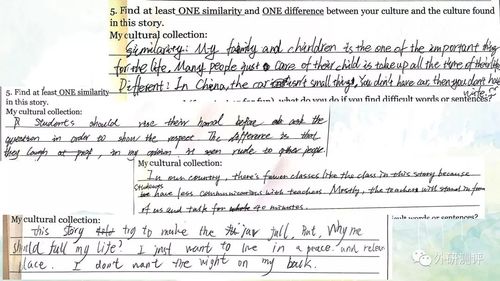 5. Find at least ONE similarity and ONE difference between your culture and the culture found
in this story.
My cultural collection:
Similarity: My family and children is the one of the important thing
for the life. Many people just care of their child is take up all the time of their life
Different: In China, the car isn't small thing, You don't have car, then you don't have
wife.
5. Find at least ONE similarity
in this story.
My cultural collection:
Students should rise their hand before ask the
question in order to show the respect. The difference is that
they laugh at prof, in my opinion is seen rude to other people.
what do you do if you find difficult words or sentences?
My cultural collection:
In our country, there's fewer classes like the class in this story because
students
we have less communications with teachers. Mostly, the teachers will stand in front
of us and talk for 40 minutes.
cult words or sentences?
My cultural collection:
This story try to make the jar full. But, Why me
should full my life? I just want to live in a peace and
place. I don't want the on my back.
外研测评